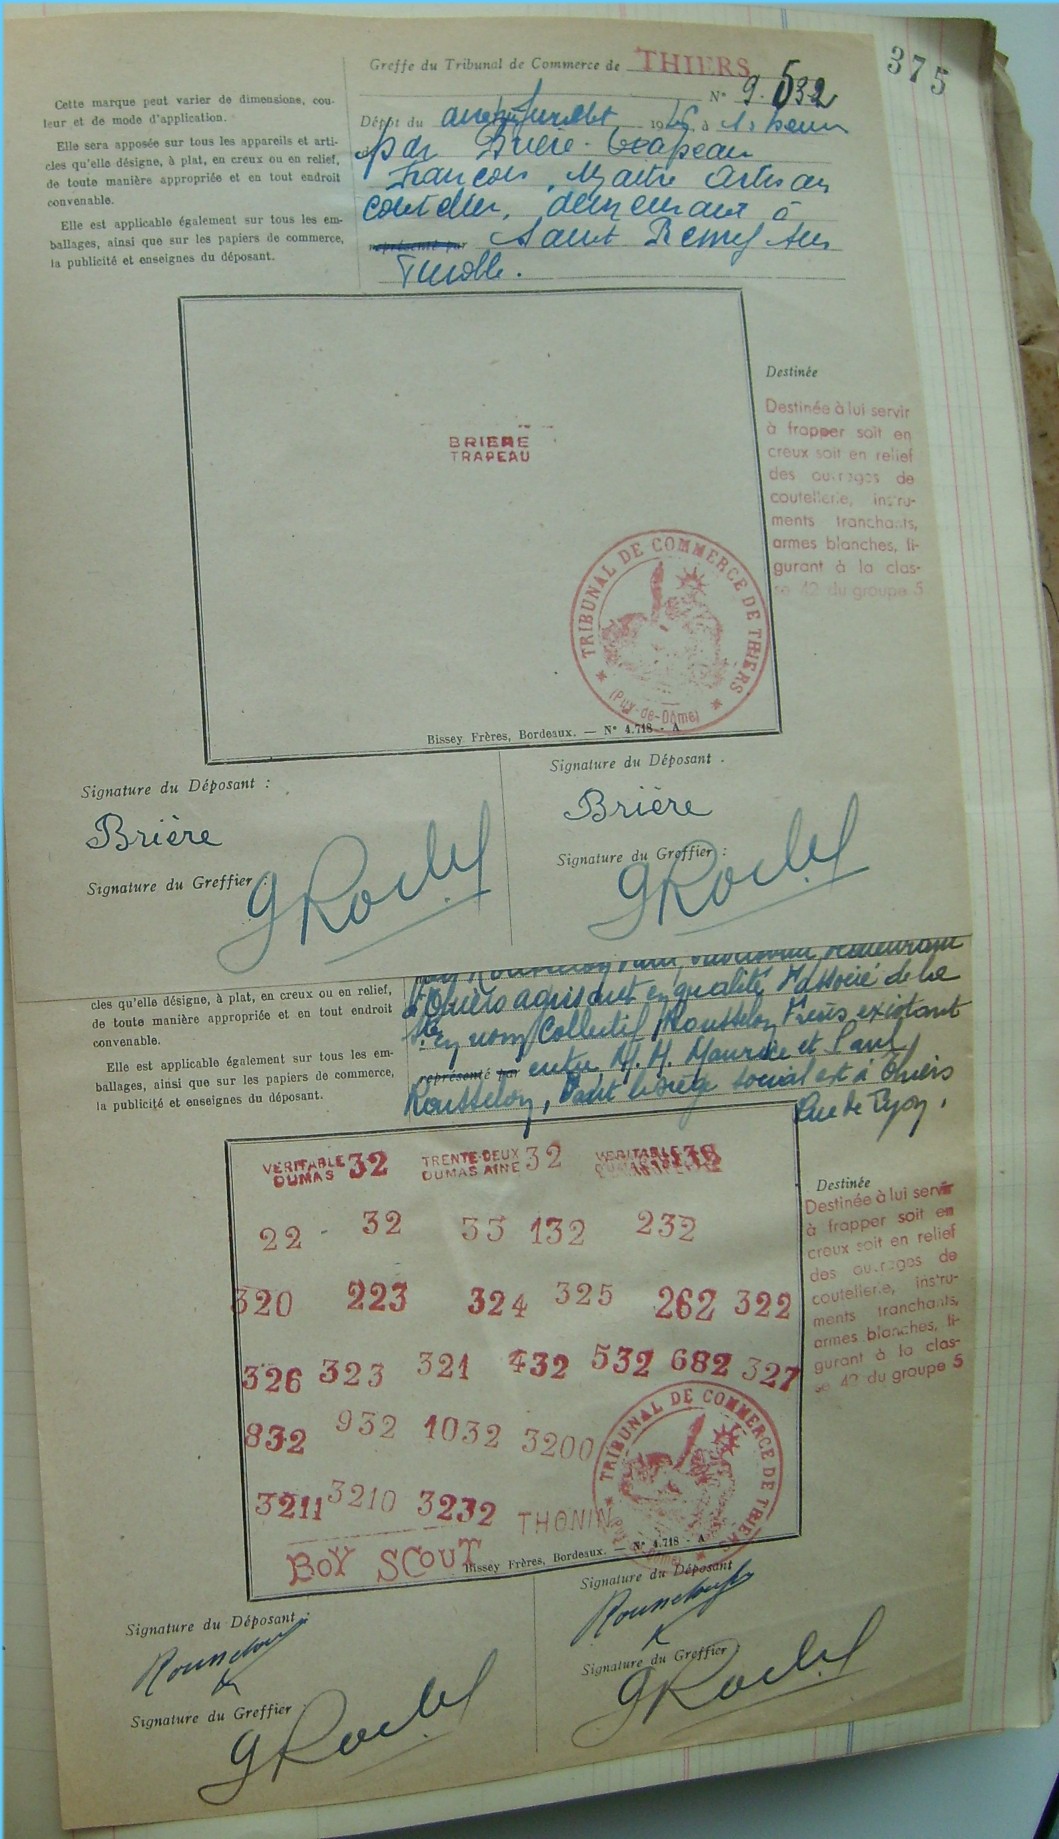 375
Greffe du Tribunal de Commerce de THIERS
N° 9.532
Cette marque peut varier de dimensione, cou-
leur et de mode d'application.
Elle sera apposée sur tous les appareils et arti-
cles qu'elle désigne, à plat, en creux ou en relief,
de toute manière appropriée et en tout endroit
convenable.
Elle est applicable également sur tous les em-
ballages, ainsi que sur les papiers de commerce,
la publicité et enseignes du déposant.
Dépôt du juillet 19 à heure
par Brière-Trapeau
François, Maître Artisan
coutelier, demeurant à
représenté par Saint Remy sur
Durolle.
BRIERE
TRAPEAU
Destinée
Destinée à lui servir
à frapper soit en
creux soit en relief
des ouvrages de
coutellerie, instru-
ments tranchants,
armes blanches, fi-
gurant à la clas-
se 42 du groupe 5
TRIBUNAL DE COMMERCE DE THIERS
(Puy-de-Dôme)
Bissey Frères, Bordeaux. — N° 4.718 - A
Signature du Déposant :
Brière
Signature du Greffier :
G Rochel
Signature du Déposant .
Brière
Signature du Greffier :
G Rochel
cles qu'elle désigne, à plat, en creux ou en relief,
de toute manière appropriée et en tout endroit
convenable.
Elle est applicable également sur tous les em-
ballages, ainsi que sur les papiers de commerce,
la publicité et enseignes du déposant.
demeurant
à Thiers agissant en qualité d'associé de la
Sté en nom Collectif Rousselon Frères existant
représenté par entre M. M. Maurice et Paul
Rousselon, dont le siège social est à Thiers
Rue de Lyon.
VERITABLE 32
DUMAS
TRENTE-DEUX 32
DUMAS AINE
VERITABLE
22 32 33 132 232
320 223 324 325 262 322
326 323 321 432 532 682 327
832 932 1032 3200
3211 3210 3232 THONIN
BOY SCOUT
TRIBUNAL DE COMMERCE DE THIERS
Bissey Frères, Bordeaux. — N° 4.718 - A
Destinée
Destinée à lui servir
à frapper soit en
creux soit en relief
des ouvrages de
coutellerie, instru-
ments tranchants,
armes blanches, fi-
gurant à la clas-
se 42 du groupe 5
Signature du Déposant :
Signature du Greffier
G Rochel
Signature du Déposant
Signature du Greffier
G Rochel